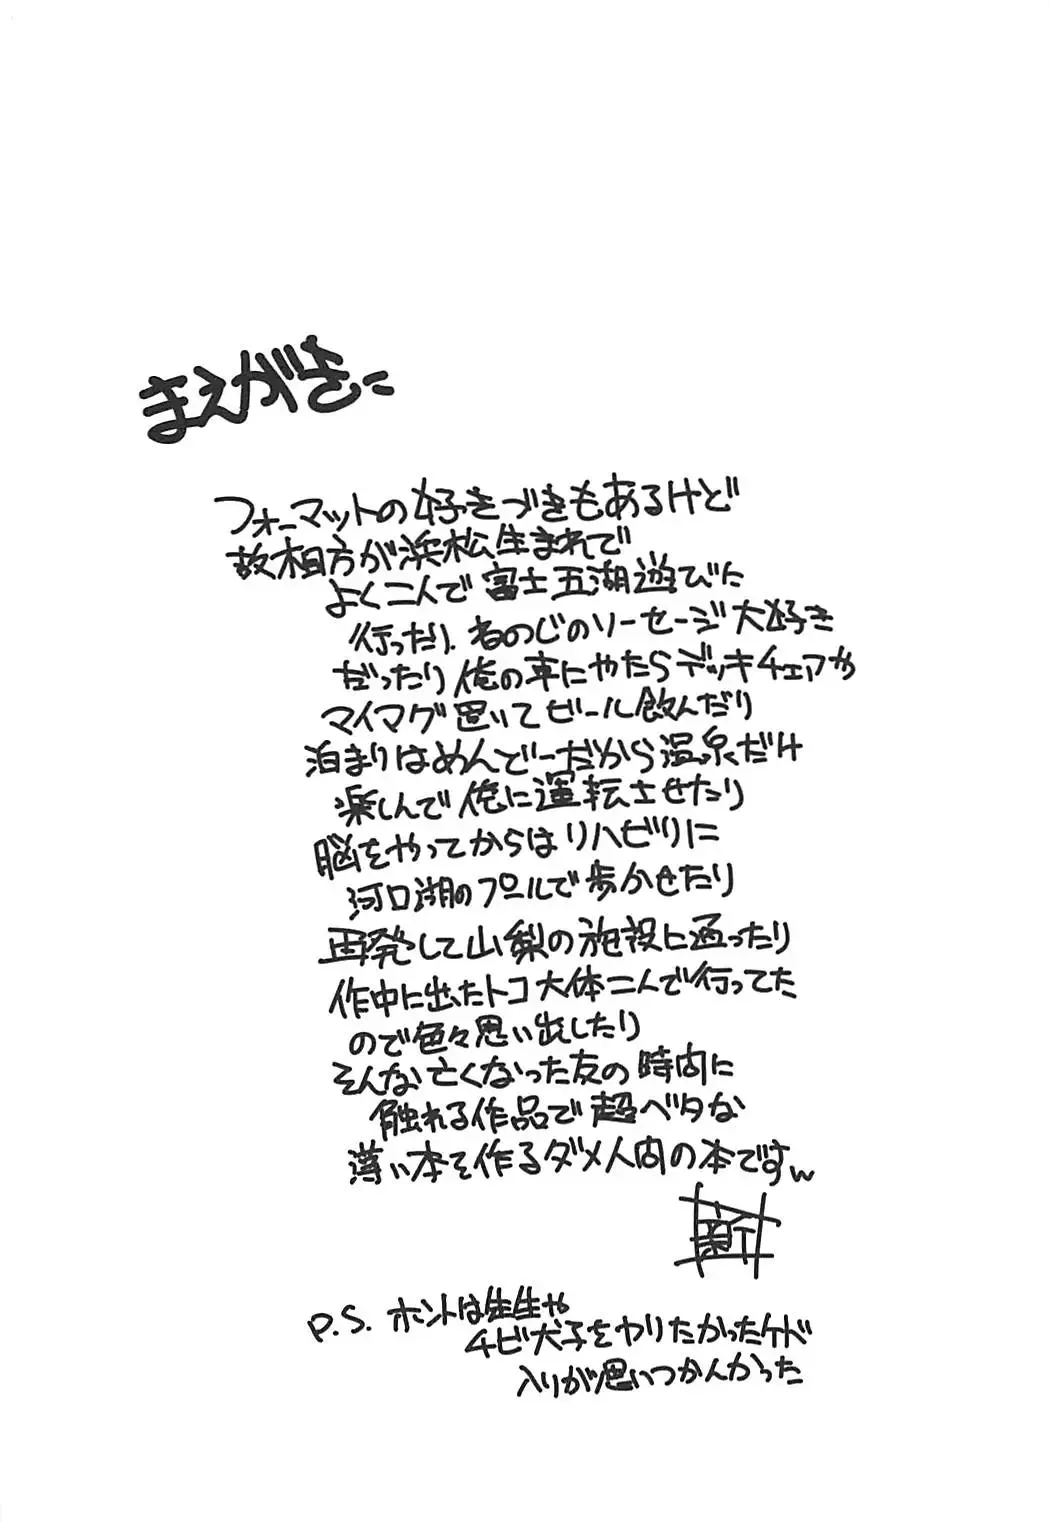 まえがき
フォーマットの好きづきもあるけど
故相方が浜松生まれで
よく二人で富士五湖遊びに
行ったり、者のじのソーセージ大好き
だったり俺の車にやたらデッキチェアか
マイマグ置いてビール飲んだり
泊まりはめんどーだから温泉だけ
楽しんで俺に運転させたり
脳をやってからはリハビリに
河口湖のプールで歩かせたり
再発して山梨の施設に通ったり
作中に出たトコ大体二人で行ってた
ので色々思い出したり
そんな亡くなった友の時間に
触れる作品で超ベタな
薄い本を作るダメ人間の本ですw
P.S. ホントは先生や
チビ犬子をやりたかったケド
入りが思いつかんかった